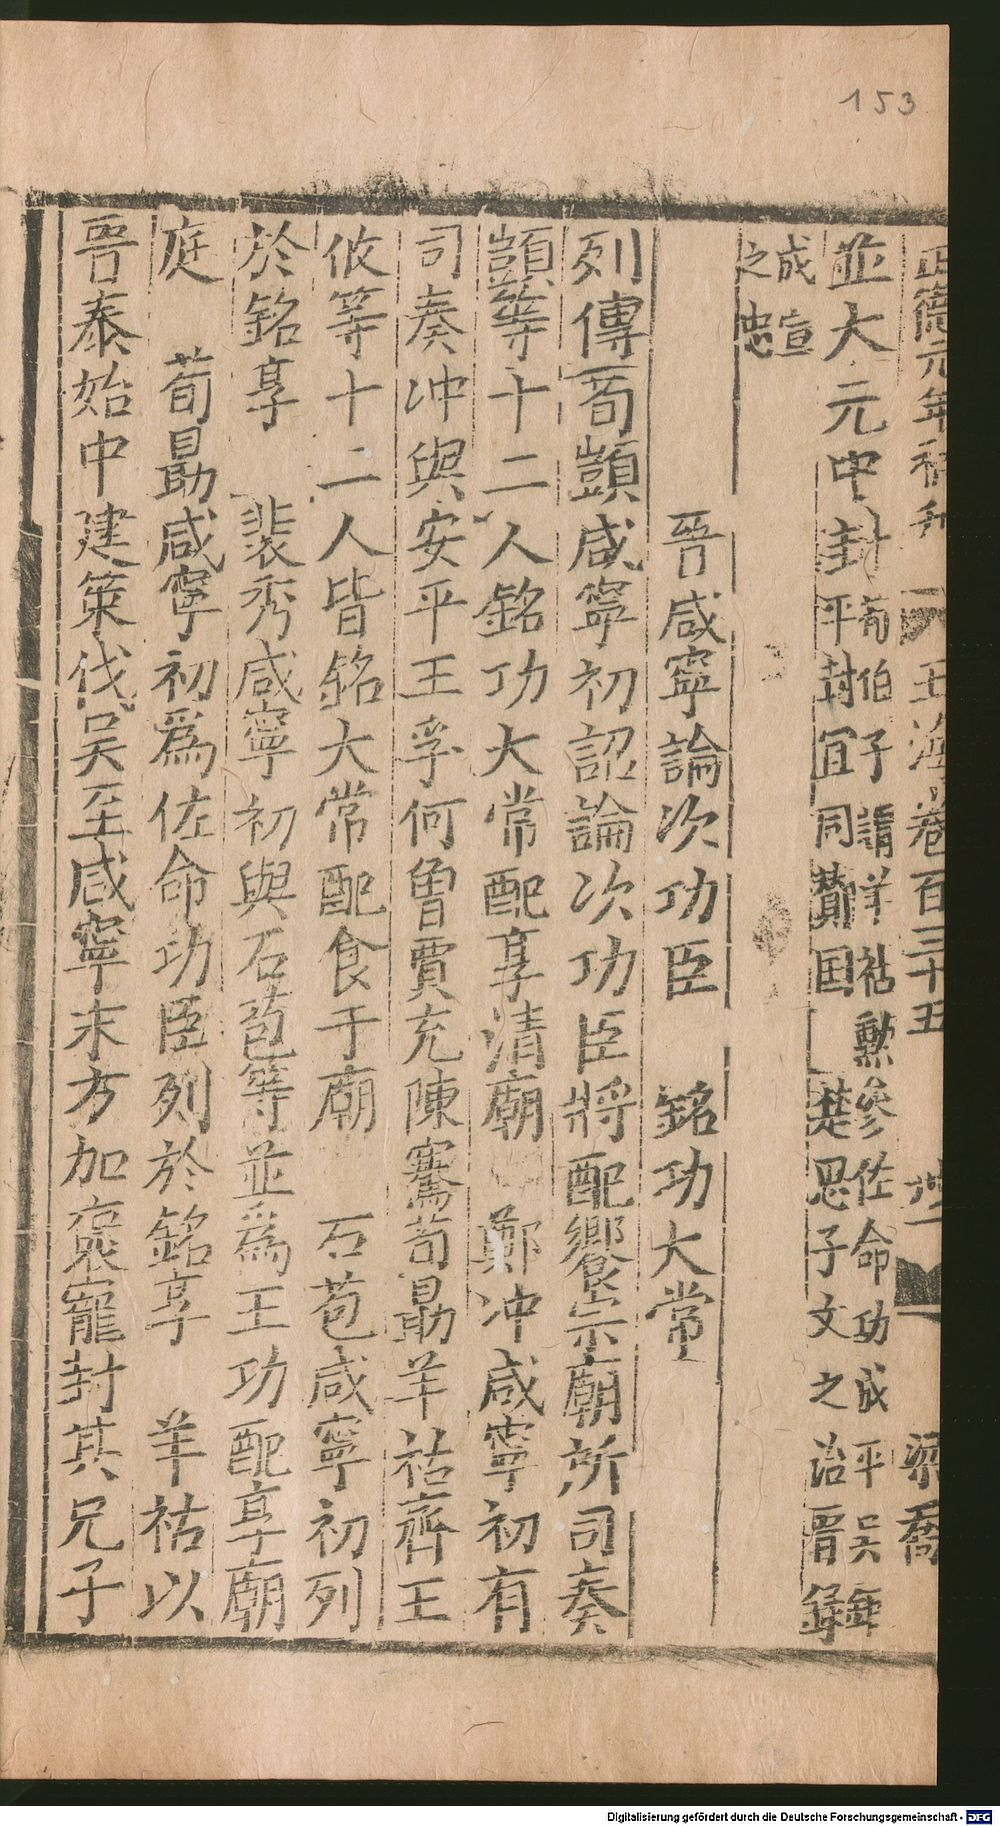 153
正德元年補刊 玉海卷百三十五 梁喬
並大元中封荀伯子謂羊祜勲參佐命功成平吳年
平封宜同酇国 楚思子文之治晉錄
成宣
之忠
晉咸寧論次功臣 銘功大常
列傳荀顗咸寧初詔論次功臣將配饗宗廟所司奏
顗等十二人銘功大常配享清廟 鄭冲咸寧初有
司奏冲與安平王孚何曽賈充陳騫荀勗羊祜齊王
攸等十二人皆銘大常配食于廟 石苞咸寧初列
於銘享 裴秀咸寧初與石苞等並爲王功配享廟
庭 荀勗咸寧初爲佐命功臣列於銘享 羊祜以
晉泰始中建策伐吴至咸寧末方加褒寵封其兄子
Digitalisierung gefördert durch die Deutsche Forschungsgemeinschaft - DFG